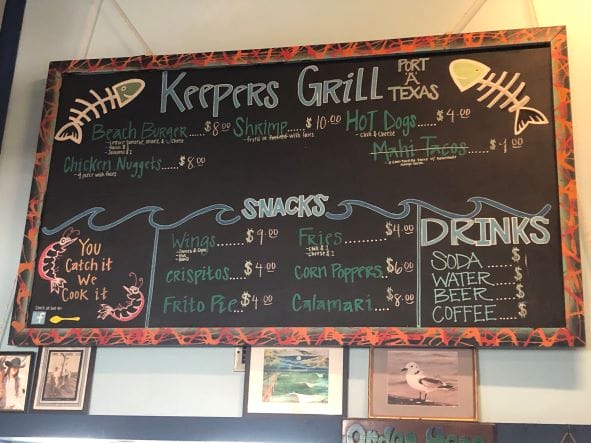 Keepers Grill PORT
"A"
TEXAS
Beach Burger......$8.00
Lettuce, Tomato, Onion, & Cheese
Bacon $1
Jalapeno $1
Shrimp......$10.00
Fried with fries
Hot Dogs.......$4.00
Chili & Cheese
Mahi Tacos
Chicken Nuggets......$8.00
with fries
SNACKS
Wings......$9.00
crispitos....$4.00
Frito Pie...$4.00
Fries.........$4.00
Chili $1
Cheese $1
Corn Poppers..$6.00
Calamari....$8.00
DRINKS
SODA.......$1
WATER.....$1
BEER......$
COFFEE....$
You
Catch it
We
Cook it
Order Here